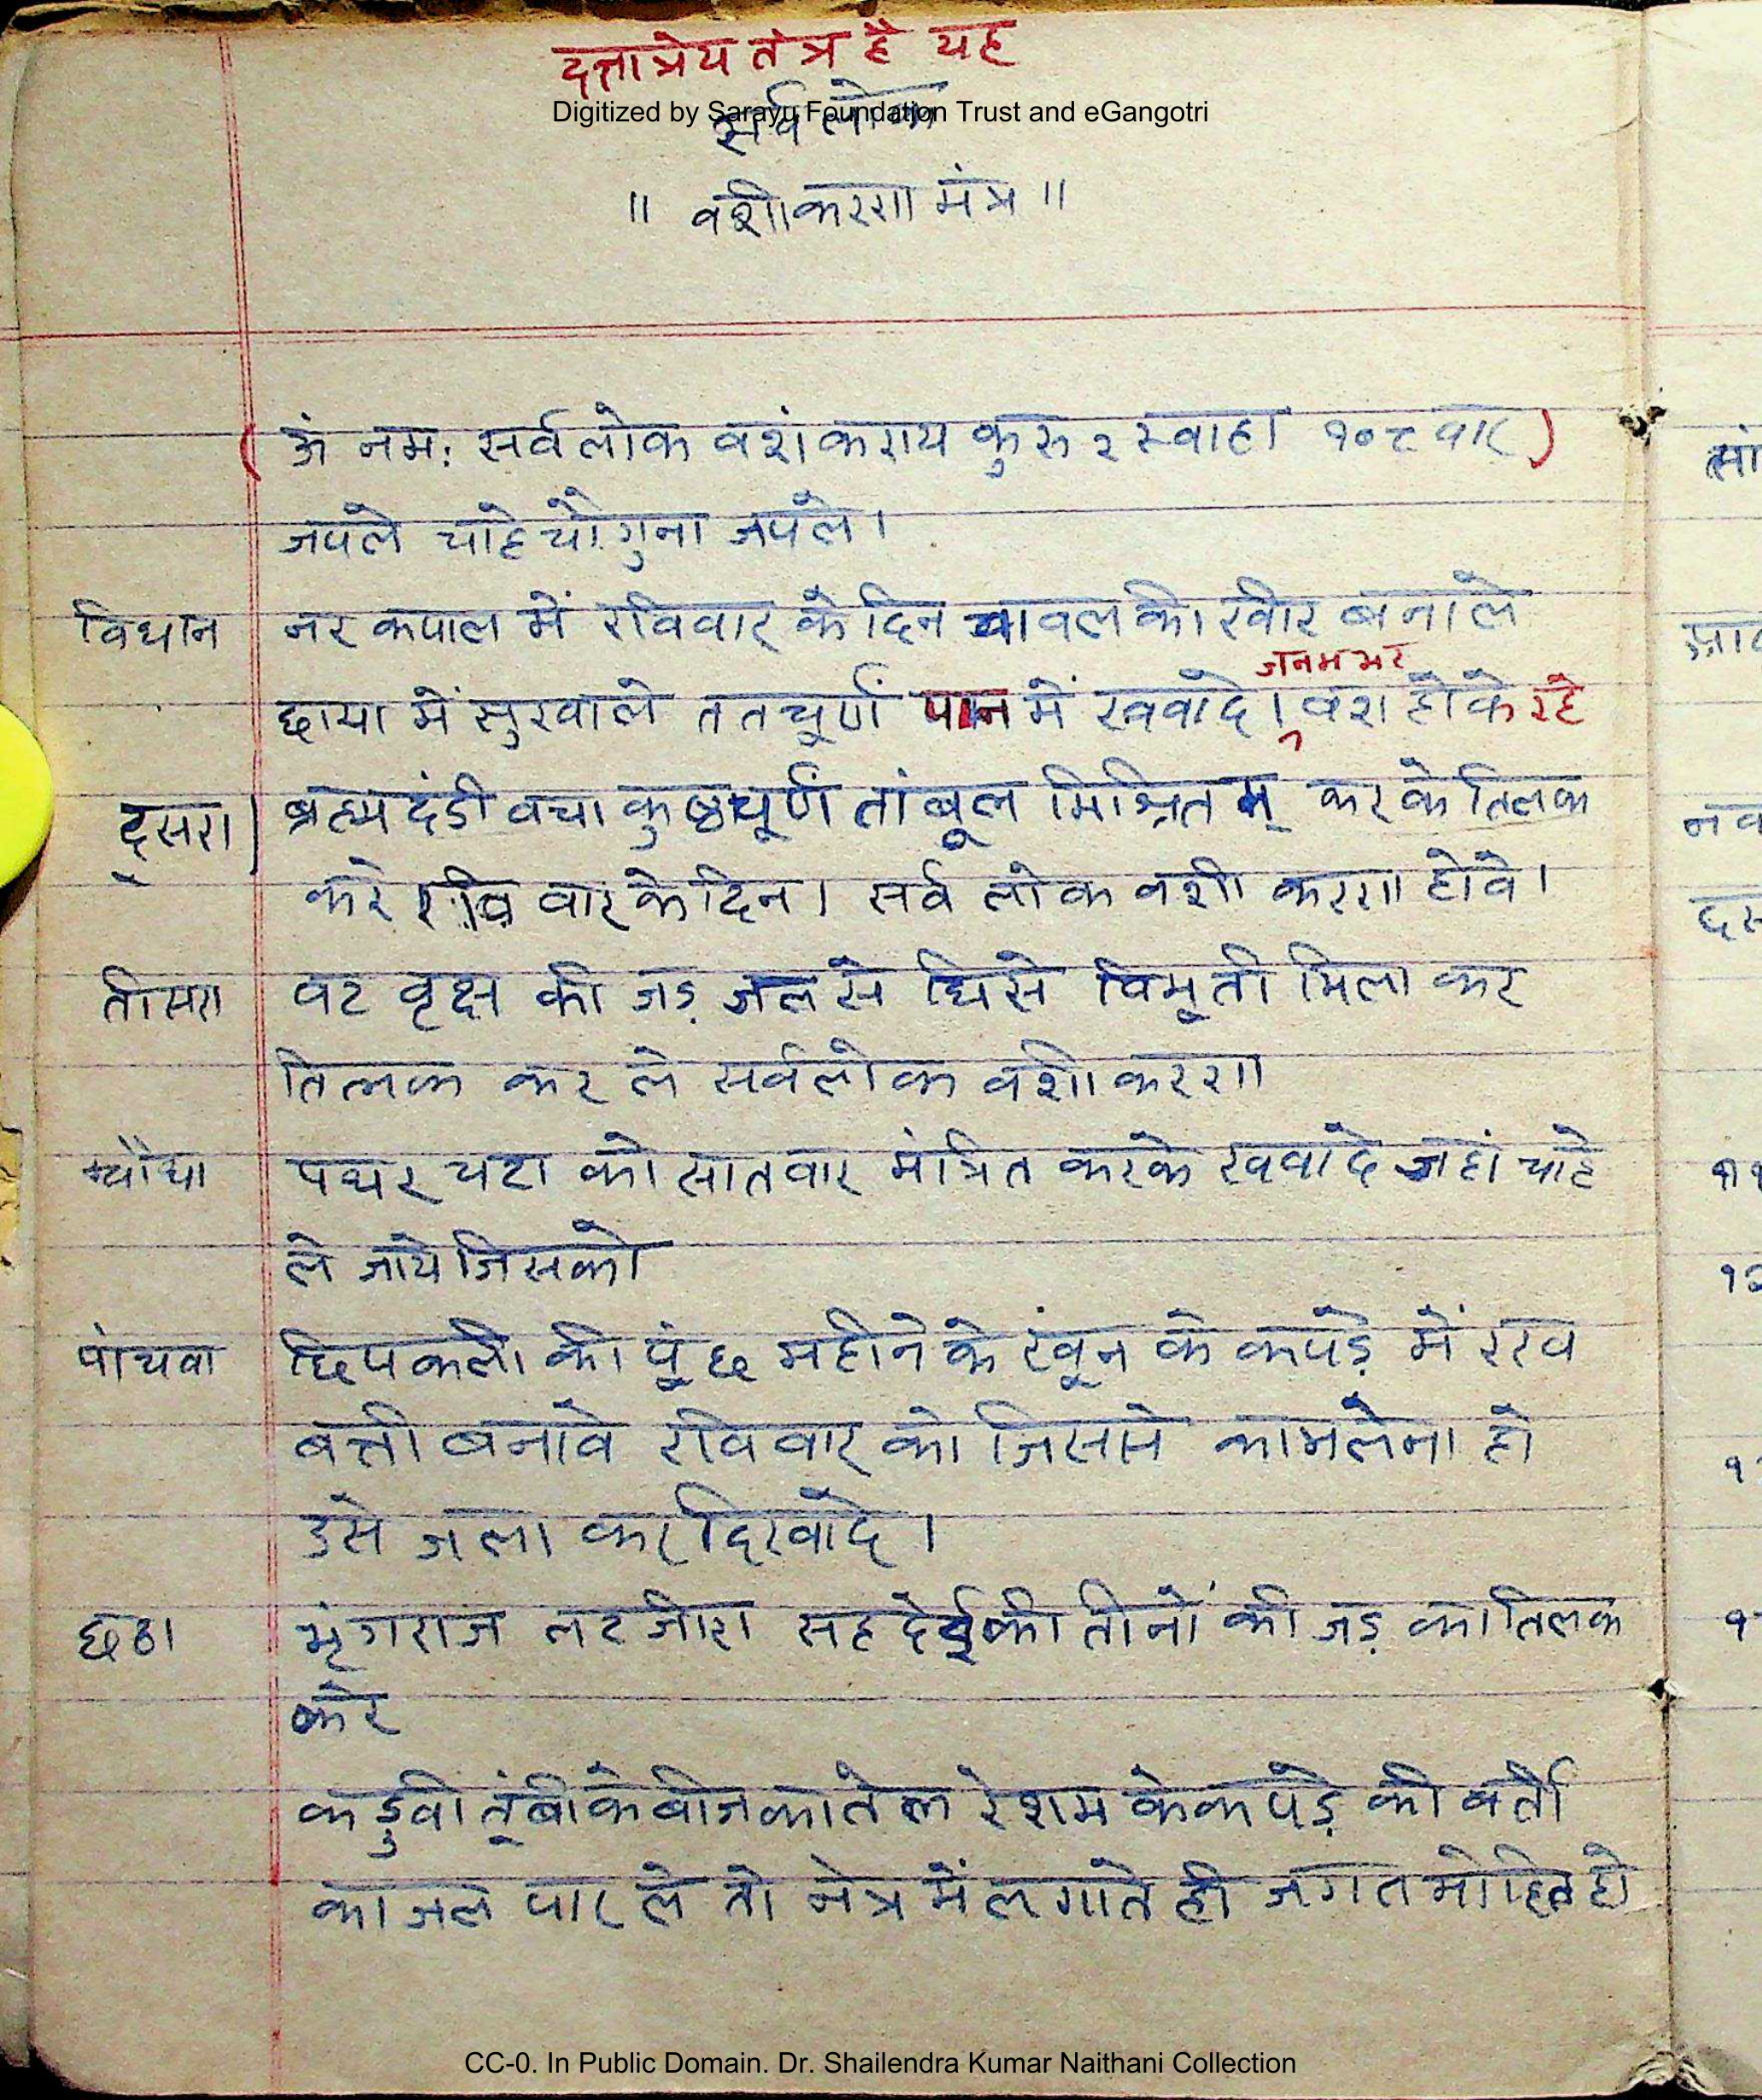 दत्तात्रेय तंत्र है यह
Digitized by Sarayu Foundation Trust and eGangotri
सर्व लोक
॥ वशीकरण मंत्र ॥
(ॐ नमः सर्वलोक वशंकराय कुरु २ स्वाहा १०८ वार)
जपले चाहे चौगुना जपले।
विधान नर कपाल में रविवार के दिन चावल की खीर बनाले
जनमभर
छाया में सुखाले ततचूर्ण पान में खवादे। वश होके रहे
दूसरा। ब्रह्मदंडी वचा कुष्ठचूर्ण तांबूल मिश्रितम् करके तिलक
करे रवि वार के दिन। सर्व लोक वशी करण होवे।
तीसरा वट वृक्ष की जड़ जल से घिसे विभूती मिला कर
तिलक कर ले सर्वलोक वशीकरण
चौथा पथर चटा को सातवार मंत्रित करके खवादे जहां चाहे
ले जाये जिसको
पांचवा छिपकली की पूंछ महीने के खून के कपड़े में रख
बत्ती बनावे रविवार को जिससे काम लेना हो
उसे जला कर दिखादे।
छठा भृंगराज लटजीरा सहदेई की तीनों की जड़ का तिलक
करे
कडुवी तूंबी के बीज का तेल रेशम के कपड़े की बत्ती
काजल पार ले तो नेत्र में लगाते ही जगत मोहित हो
सां
नव
दस
CC-0. In Public Domain. Dr. Shailendra Kumar Naithani Collection